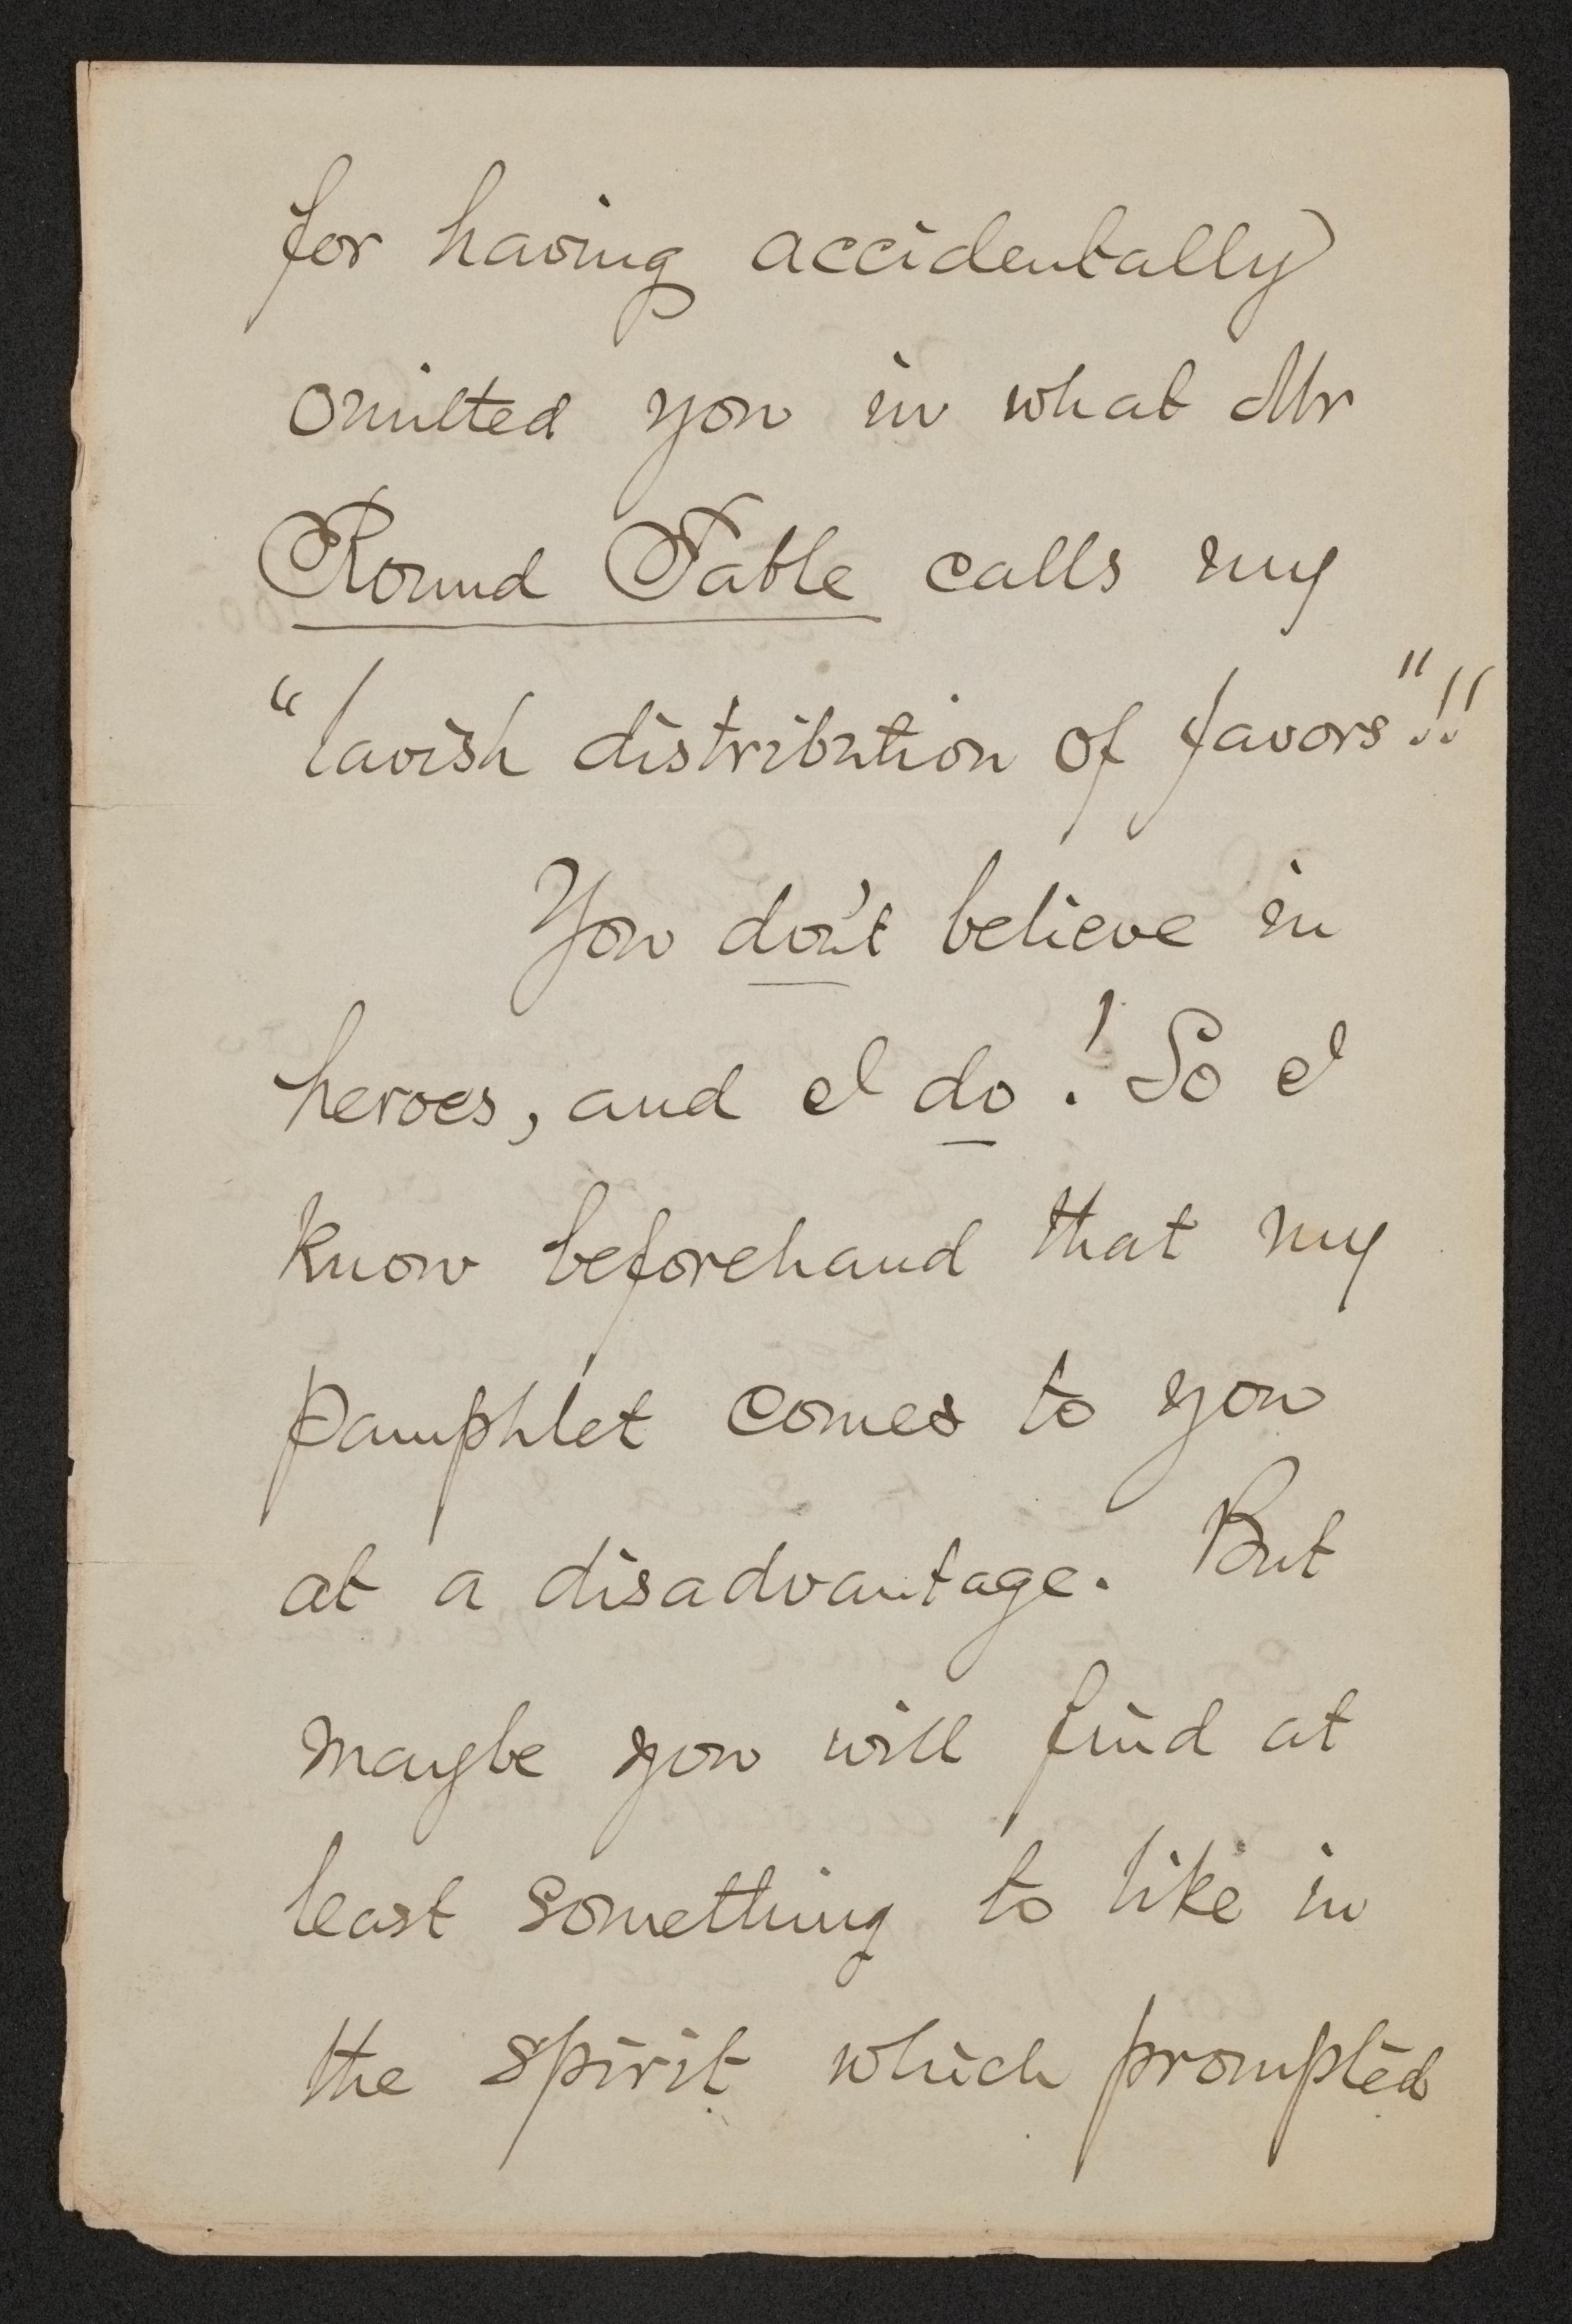 for having accidentally
omitted you in what Mr
Round Table calls my
"lavish distribution of favors"!!
You don't believe in
heroes, and I do! So I
know beforehand that my
pamphlet comes to you
at a disadvantage. But
maybe you will find at
least something to like in
the spirit which prompted